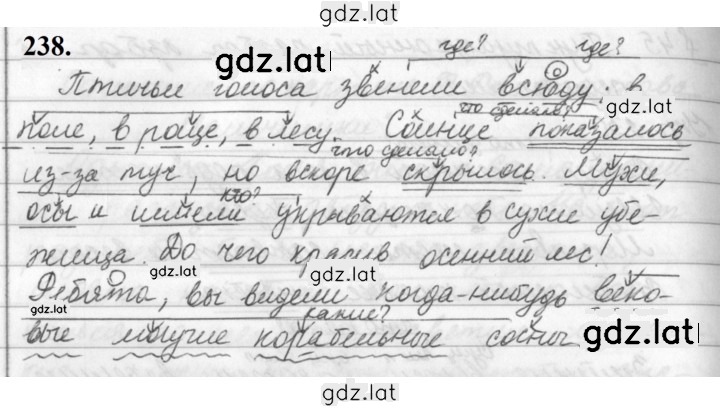 gdz.lat
238.
где? где?
Птичьи голоса звенели всюду: в
gdz.lat gdz.lat
что сделало?
поле, в роще, в лесу. Солнце показалось
что сделало?
из-за туч, но вскоре скрылось. Мухи,
кто?
осы и шмели укрываются в сухие убе-
жища. До чего красив осенний лес!
gdz.lat gdz.lat
Ребята, вы видели когда-нибудь веко-
gdz.lat какие? gdz.lat
вые могучие корабельные сосны
gdz.lat